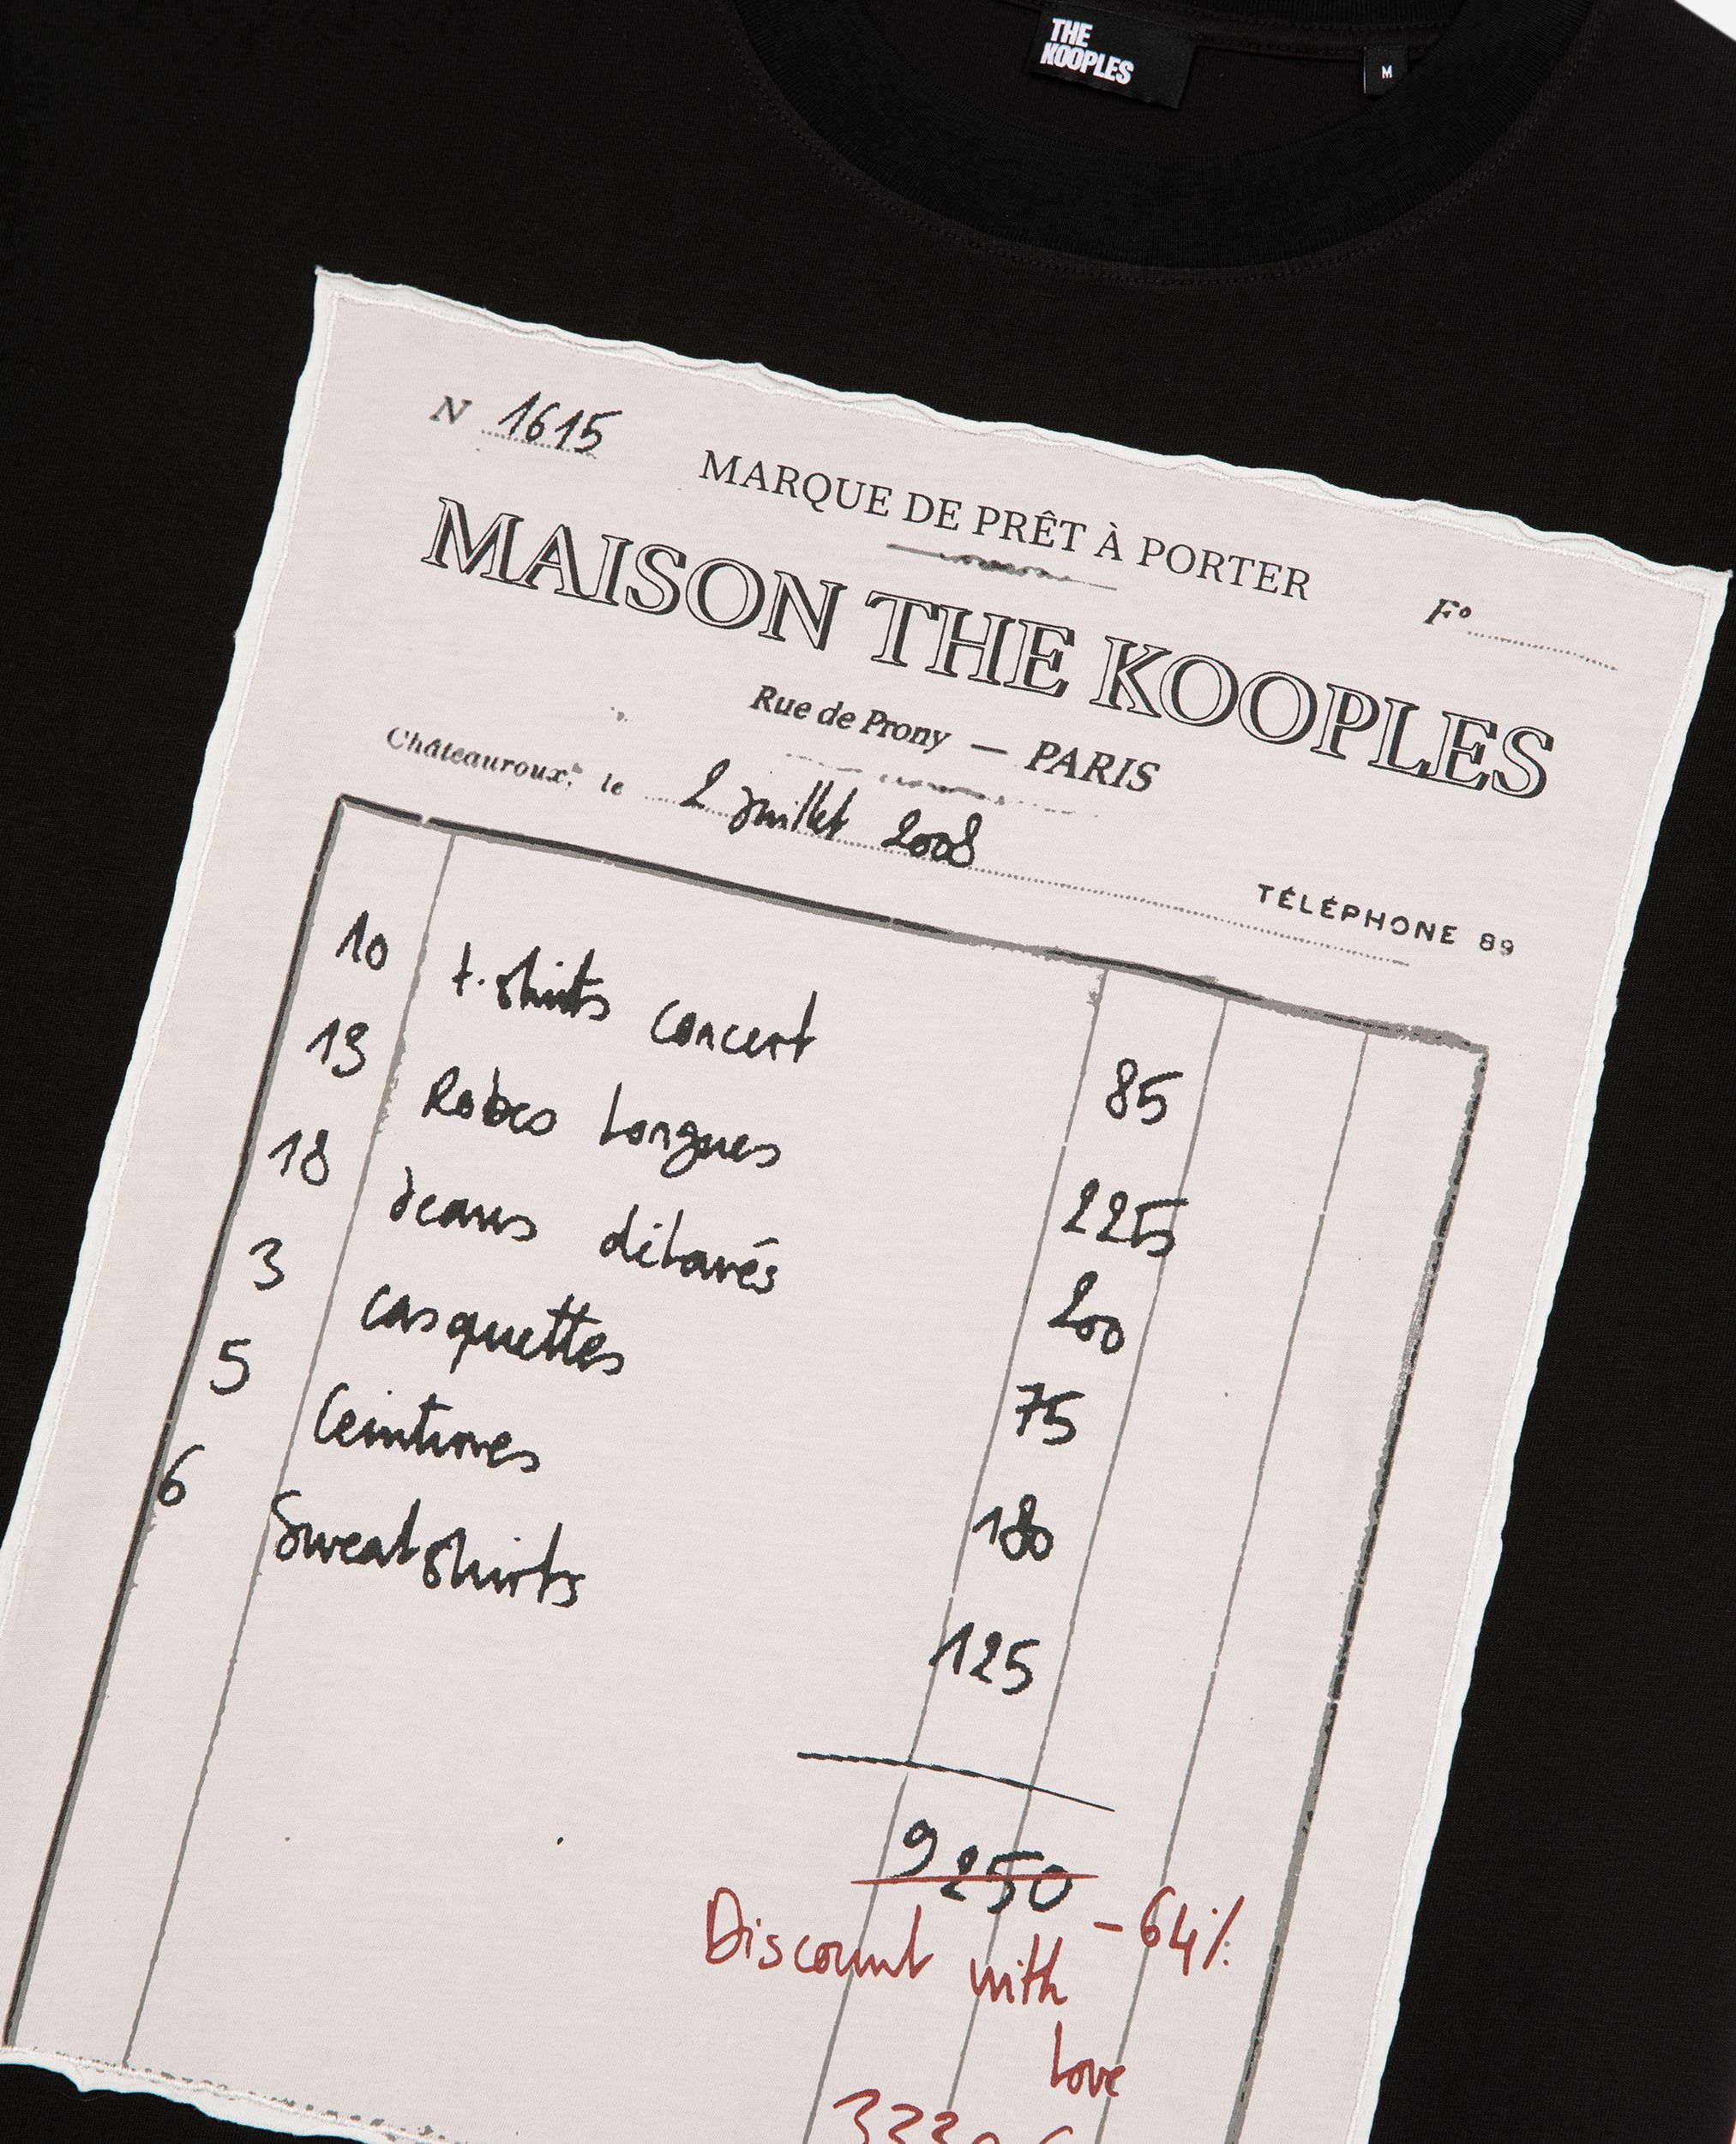 THE
KOOPLES
M
N 1615
MARQUE DE PRÊT À PORTER
F°
MAISON THE KOOPLES
Rue de Prony — PARIS
Châteauroux, le 2 juillet 2008
TÉLÉPHONE 89
10 t-shirts concert 85
13 Robes longues 225
18 Jeans délavés 200
3 casquettes 75
5 Ceintures 180
6 Sweatshirts 125
9250
-64%
Discount with
love